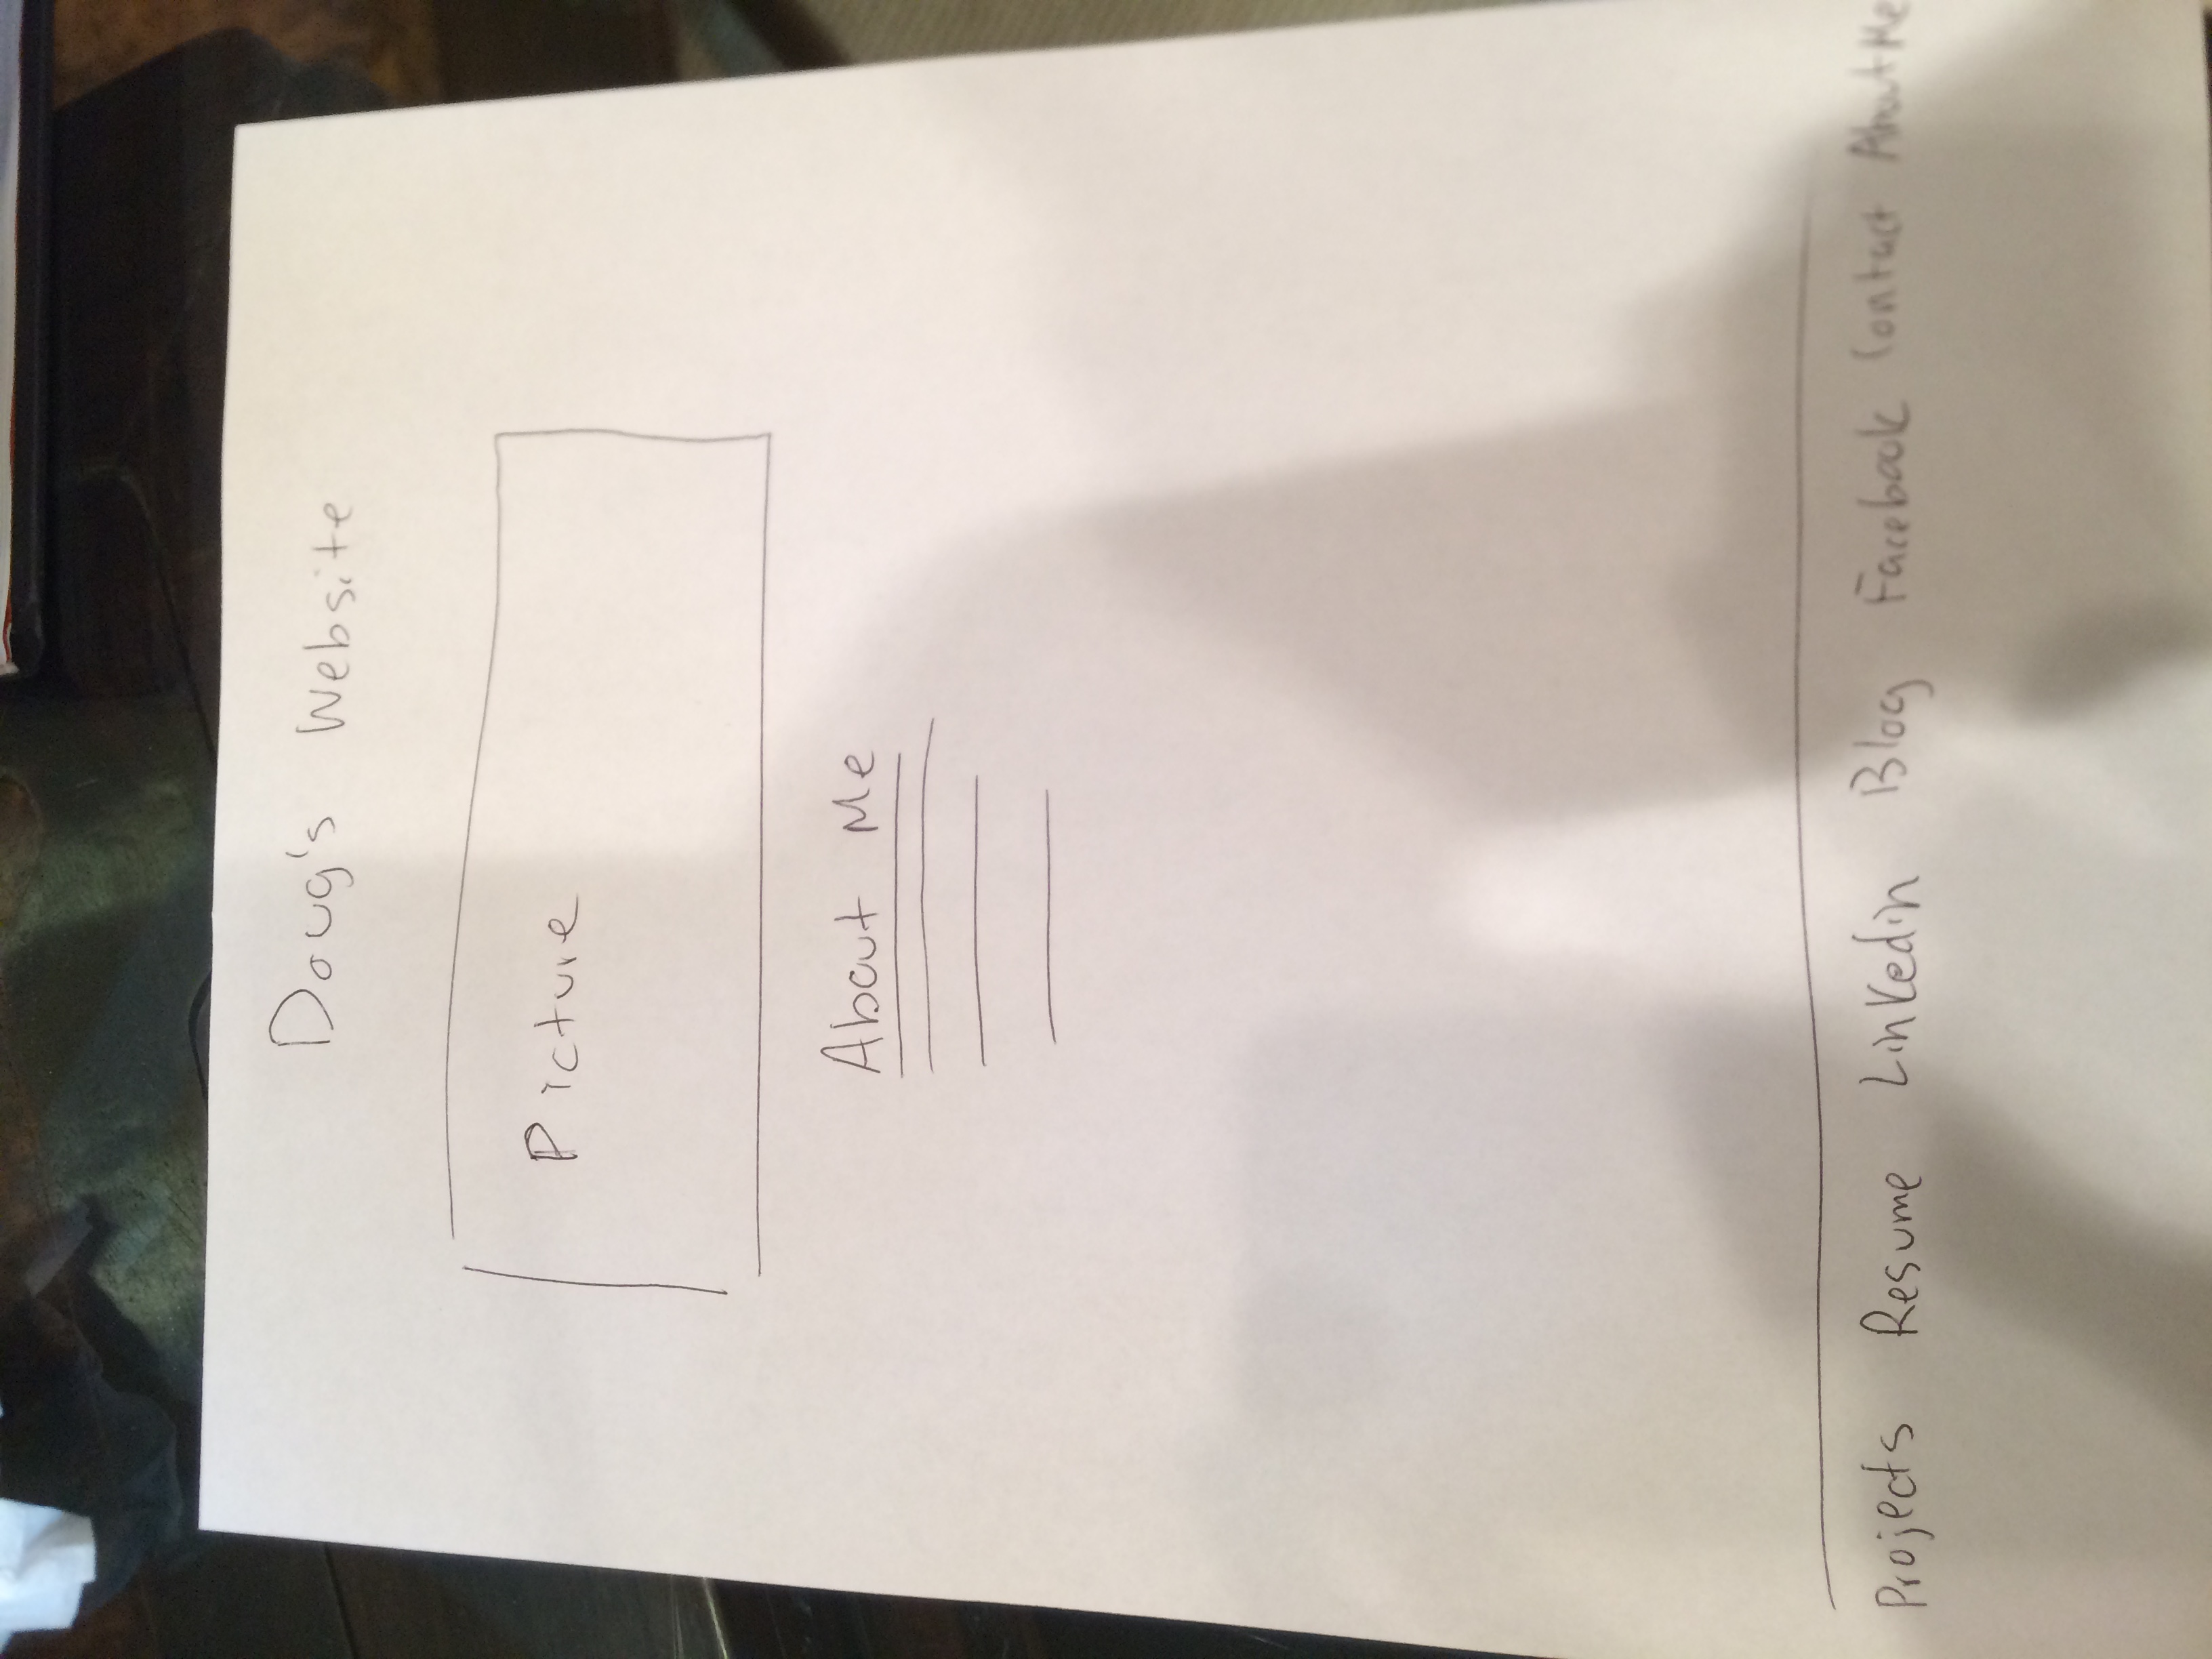 Doug's Website
Picture
About Me
Projects Resume Linkedin Blog Facebook Contact About Me